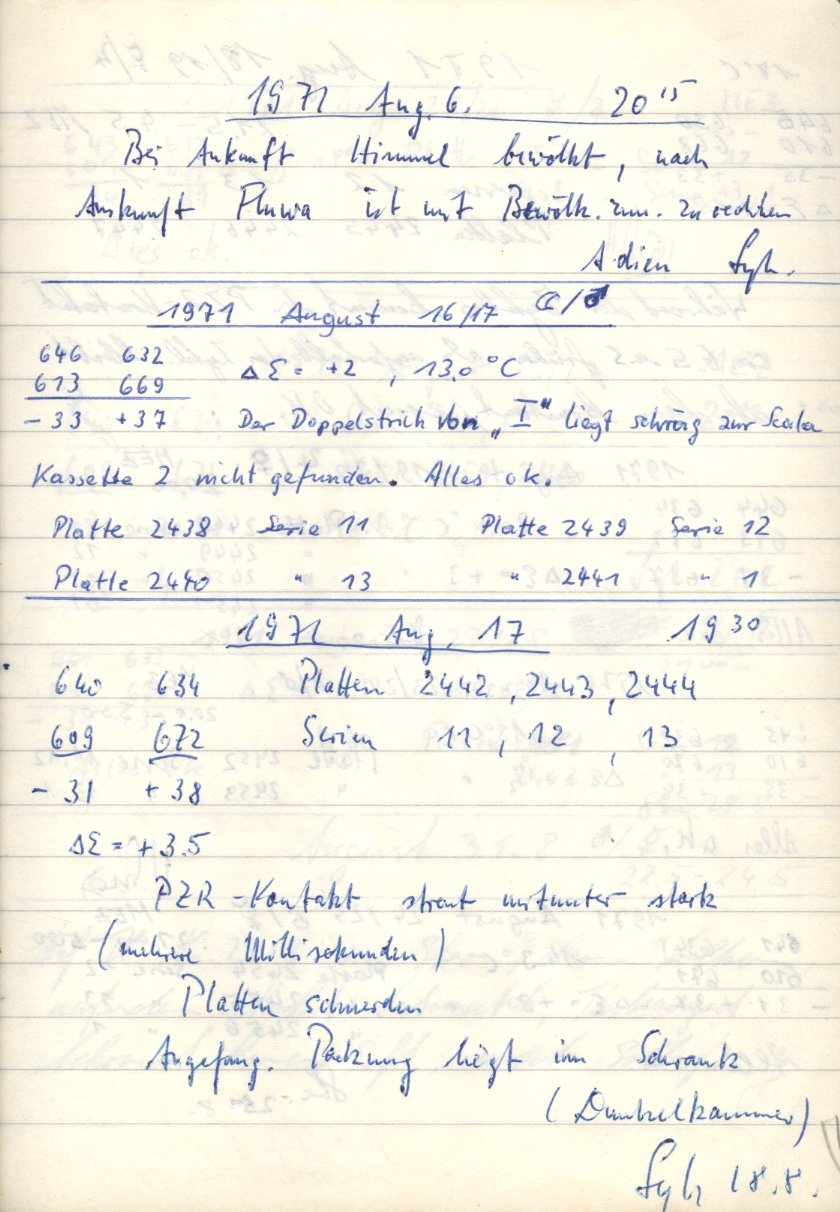 1971 Aug. 6. 20 15
Bei Ankunft Himmel bewölkt, nach
Auskunft Fluwa ist mit Bewölk. zun. zu rechnen
Adieu
1971 August 16/17 ☾/♂
646 632
613 669 ΔΣ = +2 , 13.0 °C
-33 +37 Der Doppelstrich von „I" liegt schräg zur Scala
Kassette 2 nicht gefunden. Alles ok.
Platte 2438 Serie 11 Platte 2439 Serie 12
Platte 2440 " 13 " 2441 " 1
1971 Aug. 17 19 30
640 634 Platten 2442, 2443, 2444
609 672 Serien 11, 12, 13
- 31 + 38
ΔΣ = + 3.5
PZR-Kontakt streut mitunter stark
(mehrere Millisekunden)
Platten schneiden
Angefang. Packung liegt im Schrank
(Dunkelkammer)
18.8.